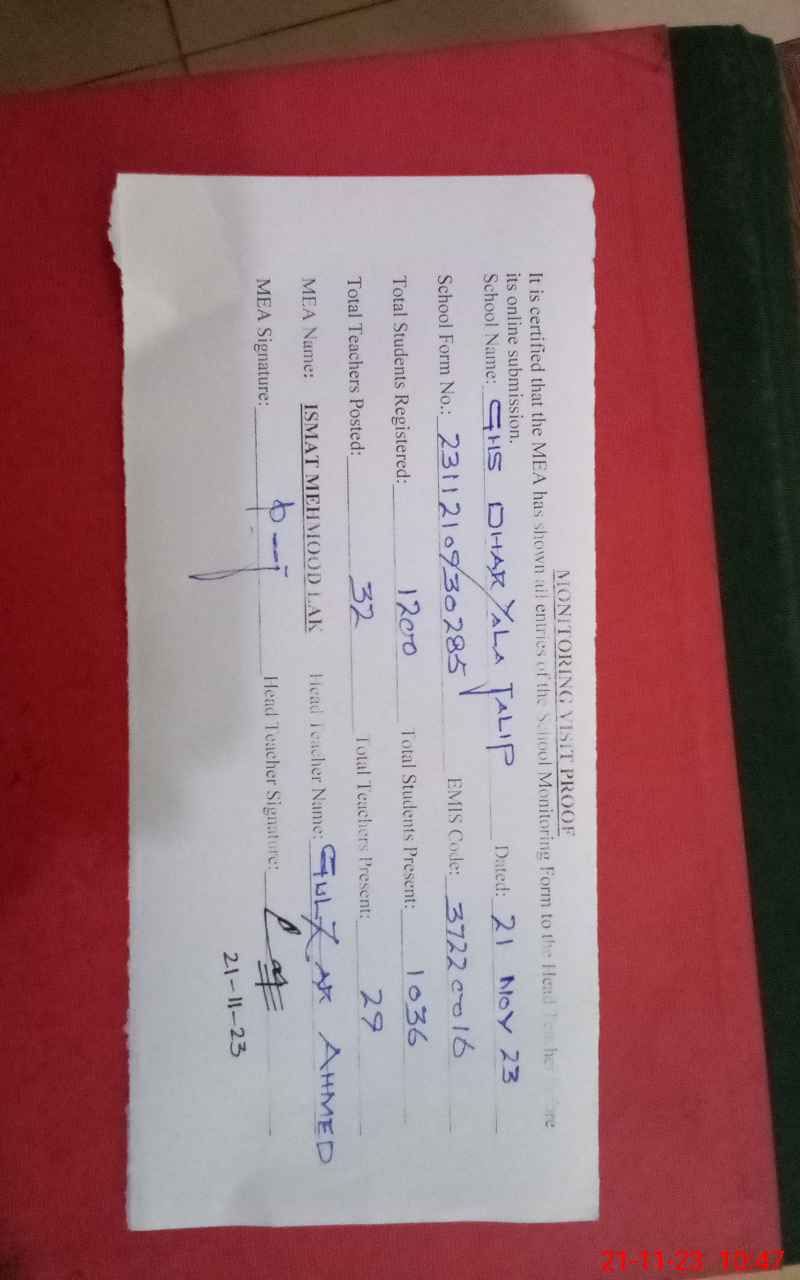 MONITORING VISIT PROOF
It is certified that the MEA has shown all entries of the School Monitoring Form to the Head Teacher
its online submission.
School Name: GHS DHARYALA JALIP Dated: 21 NOV 23
School Form No.: 2311210930285 EMIS Code: 37220016
Total Students Registered: 1200 Total Students Present: 1036
Total Teachers Posted: 32 Total Teachers Present: 29
MEA Name: ISMAT MEHMOOD LAK Head Teacher Name: GULZAR AHMED
MEA Signature: Head Teacher Signature:
21-11-23
21-11-23 10:47